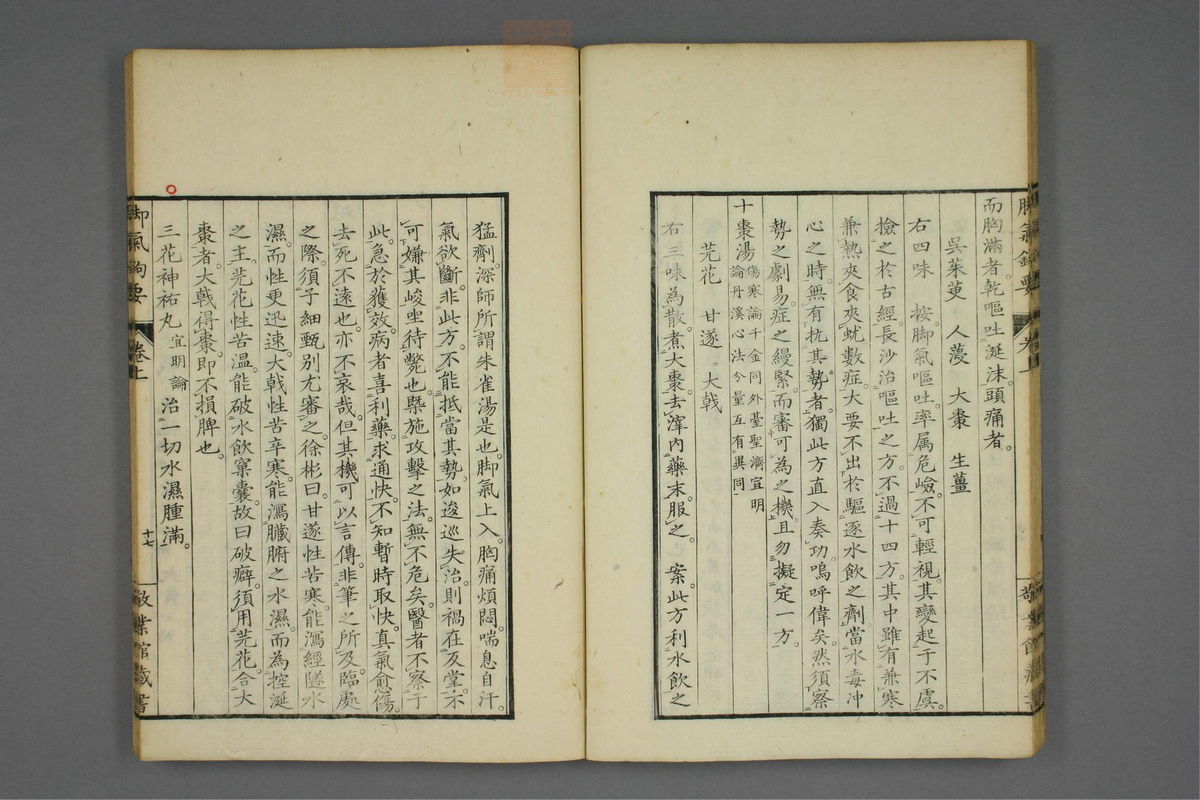 而胸滿者乾嘔吐涎沫頭痛者。
吳茱萸　人蓡　大棗　生薑
右四味　按脚氣嘔吐率属危嶮不可輕視其變起于不虞。
撿之於古經長沙治嘔吐之方不過十四方其中雖有兼寒
兼熱夾食夾蚘數症大要不出於驅逐水飲之劑當水毒冲
心之時無有抗其勢者獨此方直入奏功嗚呼偉矣。然須察
勢之劇易症之縵緊而審可為之機且勿擬定一方
十棗湯傷寒論千金同外臺聖濟宣明
論丹溪心法分量互有異同
芫花　甘遂　大戟
右三味為散煮大棗去滓內藥末服之　案此方利水飲之
猛劑深師所謂朱雀湯是也脚氣上入胸痛煩悶喘息自汗。
氣欲斷非此方不能抵當其勢如逡巡失治則禍在反堂不
可嫌其峻坐待斃也槩施攻擊之法無不危矣醫者不察于
此急於獲效病者喜利藥求通快不知暫時取快真氣愈傷。
去死不遠也亦不哀哉但其機可以言傳非筆之所及臨處
之際須子細甄別尤審之徐彬曰甘遂性苦寒能瀉經隧水
濕而性更迅速大戟性苦辛寒能瀉臟腑之水濕而為控涎
之主芫花性苦温能破水飲窠囊故曰破癖須用芫花合大
棗者大戟得棗即不損脾也。
三花神祐丸宣明論治一切水濕腫滿。
脚氣鉤要
卷上
十七